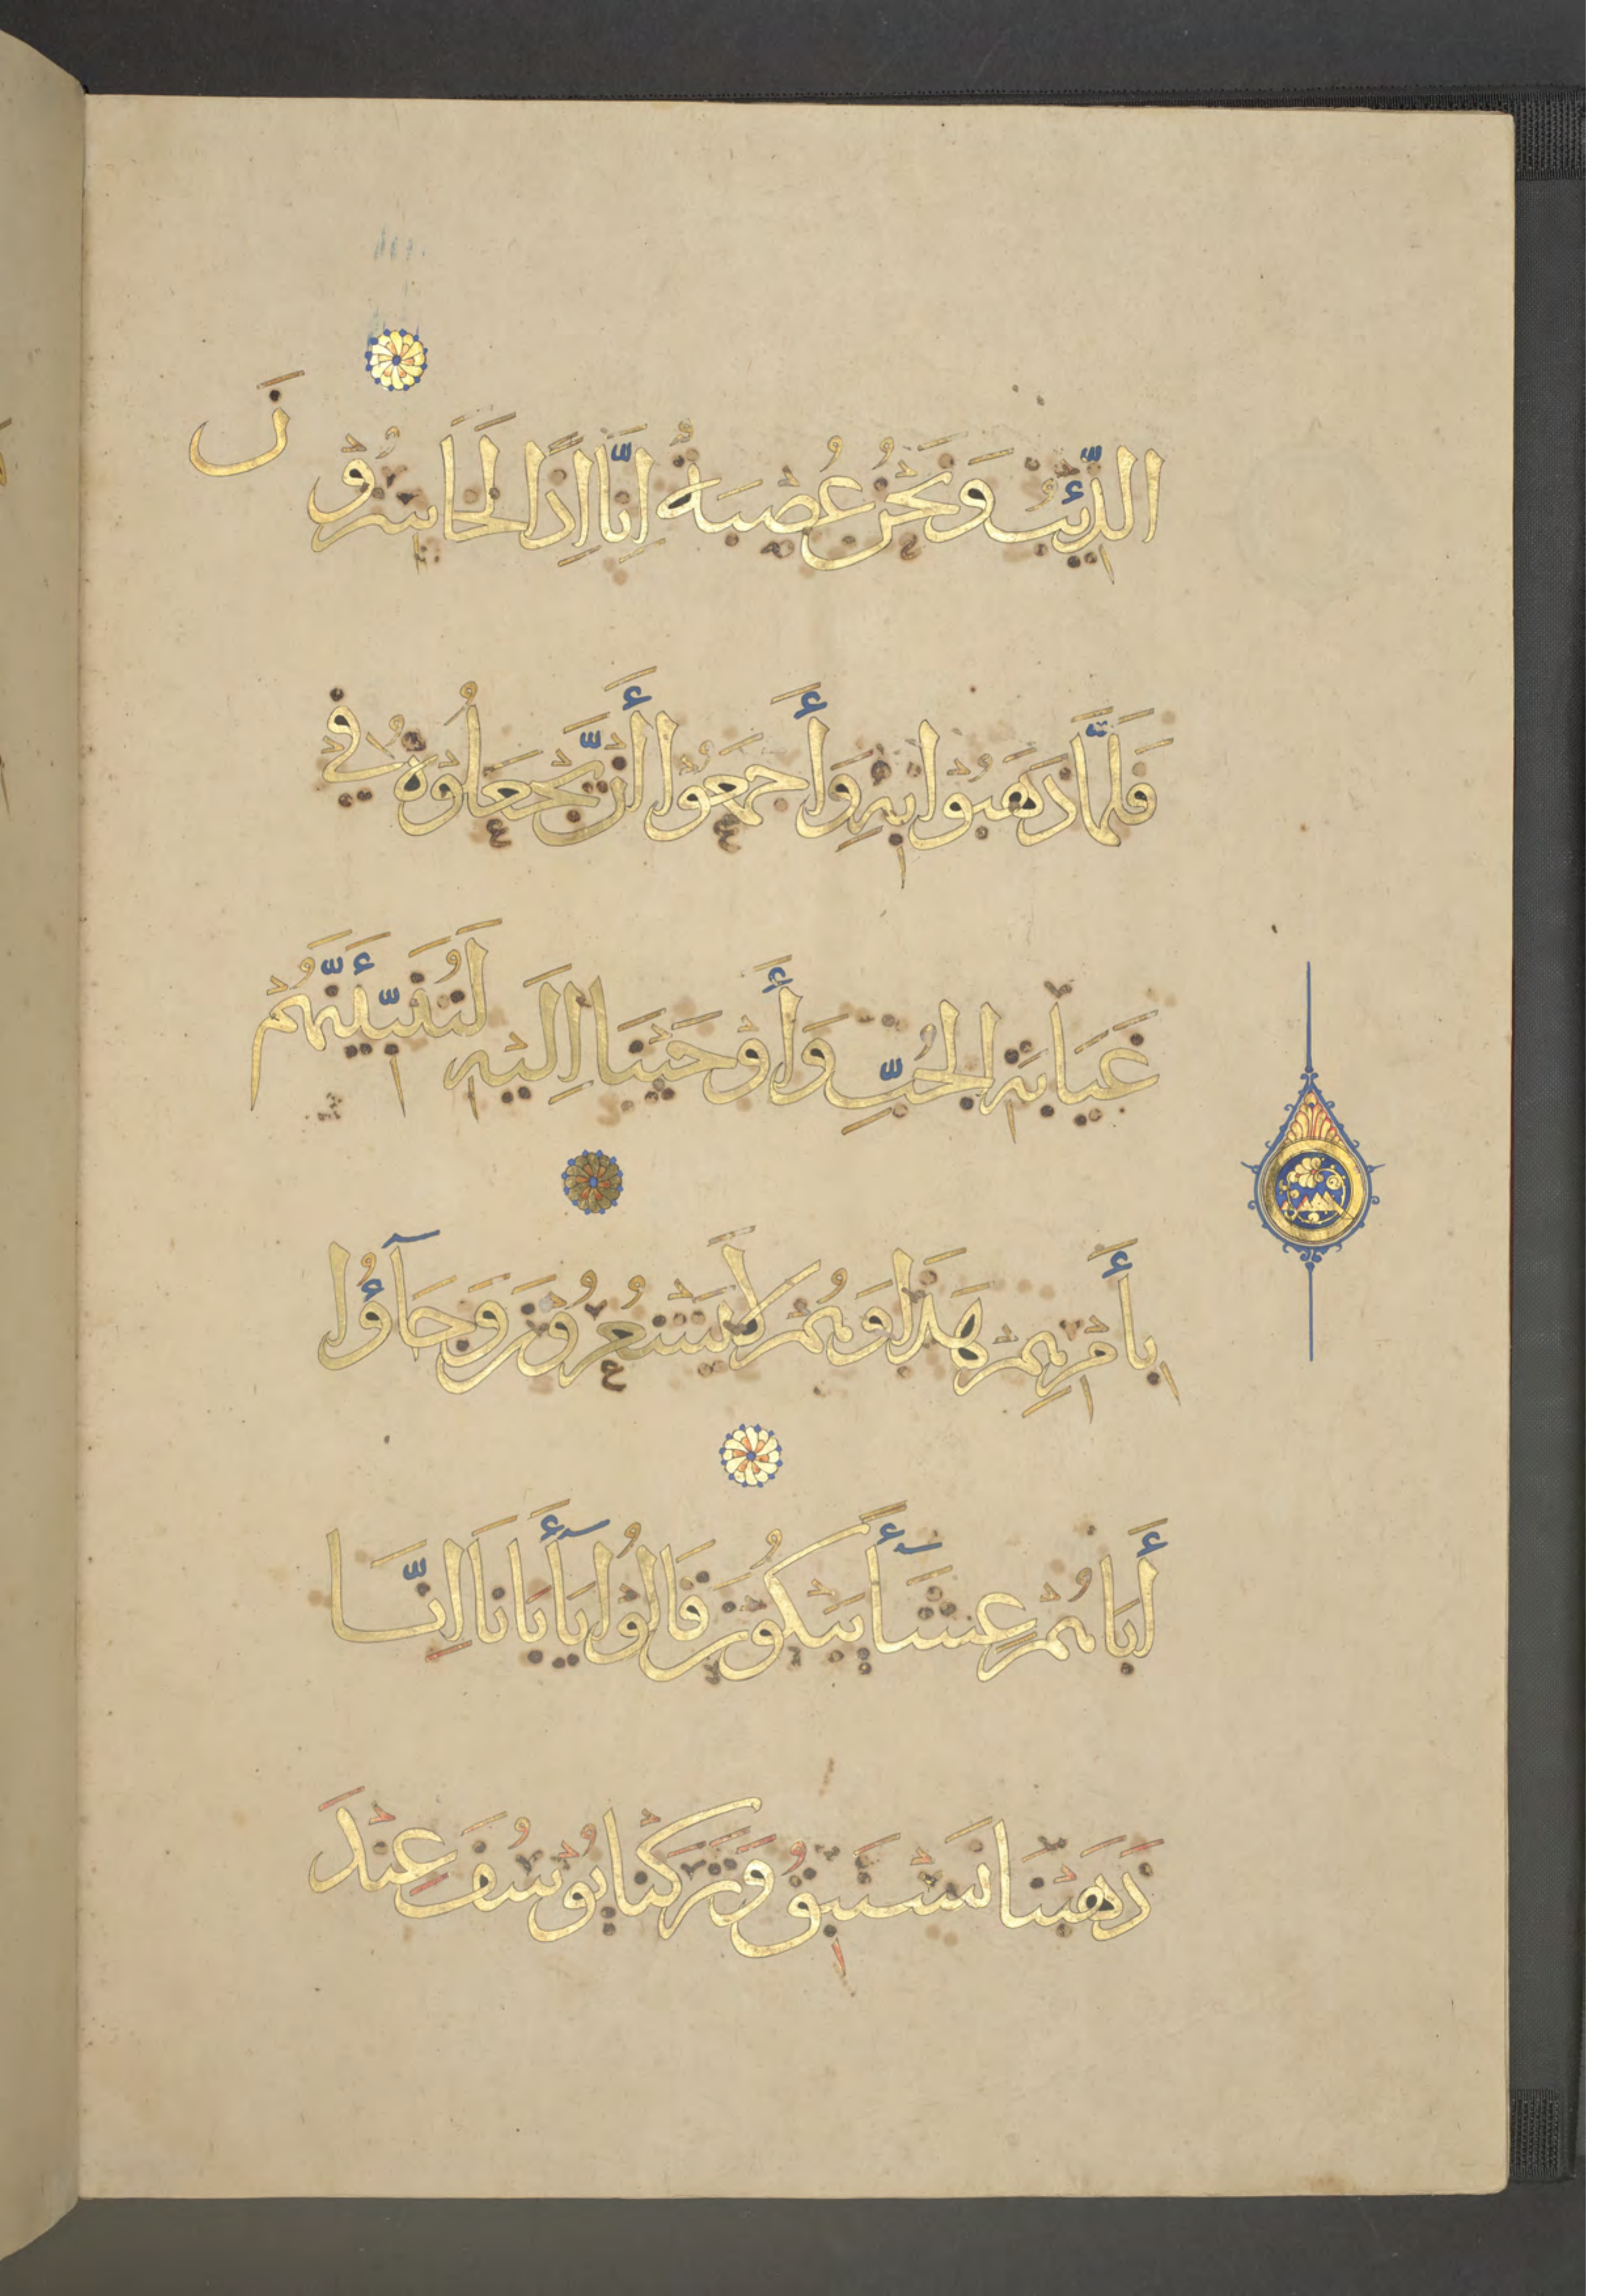 الذِّئْبُ وَنَحْنُ عُصْبَةٌ اِنَّا اِذًا لَخَاسِرُوْنَ
فَلَمَّا ذَهَبُوْا بِهِ وَأَجْمَعُوْا أَنْ يَّجْعَلُوْهُ فِي
غَيَابَةِ الْجُبِّ وَأَوْحَيْنَا اِلَيْهِ لَتُنَبِّئَنَّهُمْ
بِأَمْرِهِمْ هَذَا وَهُمْ لَا يَشْعُرُوْنَ وَجَآؤُا
أَبَاهُمْ عِشَآءً يَبْكُوْنَ قَالُوْا يَآأَبَانَا اِنَّا
ذَهَبْنَا نَسْتَبِقُ وَتَرَكْنَا يُوْسُفَ عِنْدَ